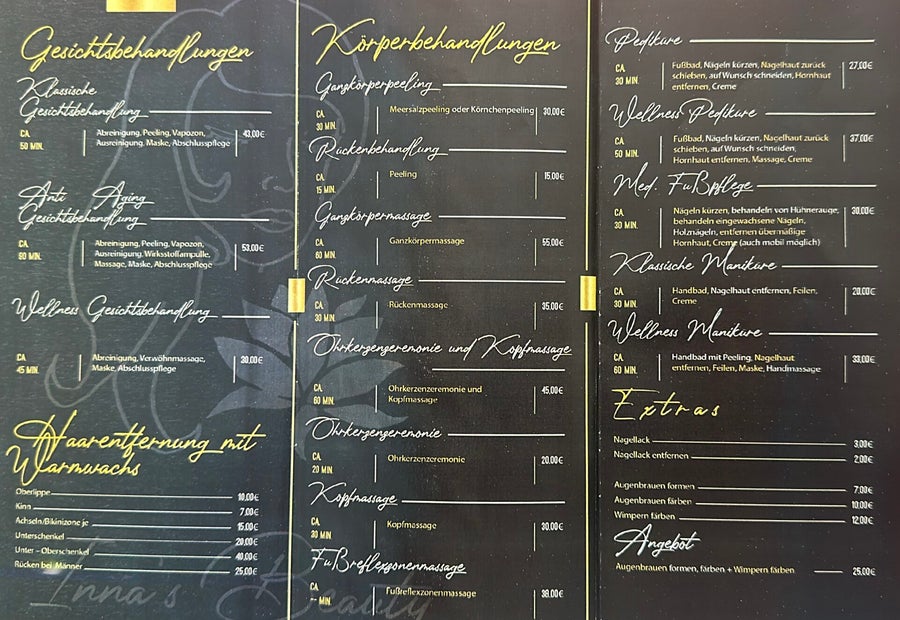 Gesichtsbehandlungen
Klassische
Gesichtsbehandlung
CA.
50 MIN.
Abreinigung, Peeling, Vapozon,
Ausreinigung, Maske, Abschlusspflege
43,00€
Anti Aging
Gesichtsbehandlung
CA.
Abreinigung, Peeling, Vapozon,
Ausreinigung, Wirkstoffampulle,
Massage, Maske, Abschlusspflege
53,00€
Wellness Gesichtsbehandlung
CA.
45 MIN.
Abreinigung, Verwöhnmassage,
Maske, Abschlusspflege
30,00€
Haarentfernung mit
Warmwachs
Oberlippe 10,00€
Kinn 7,00€
Achseln/Bikinizone je 15,00€
Unterschenkel 20,00€
Unter – Oberschenkel 40,00€
Rücken bei Männer 25,00€
Inna's Beauty
Körperbehandlungen
Ganzkörperpeeling
CA.
30 MIN.
Meersalzpeeling oder Körnchenpeeling
30,00€
Rückenbehandlung
CA.
15 MIN.
Peeling
15,00€
Ganzkörpermassage
CA.
60 MIN.
Ganzkörpermassage
55,00€
Rückenmassage
CA.
30 MIN.
Rückenmassage
35,00€
Ohrkerzenzeremonie und Kopfmassage
CA.
60 MIN.
Ohrkerzenzeremonie und
Kopfmassage
45,00€
Ohrkerzenzeremonie
CA.
20 MIN.
Ohrkerzenzeremonie
20,00€
Kopfmassage
CA.
30 MIN.
Kopfmassage
30,00€
Fußreflexzonenmassage
CA.
-- MIN.
Fußreflexzonenmassage
38,00€
Pediküre
CA.
30 MIN.
Fußbad, Nägeln kürzen, Nagelhaut zurück
schieben, auf Wunsch schneiden, Hornhaut
entfernen, Creme
27,00€
Wellness Pediküre
CA.
50 MIN.
Fußbad, Nägeln kürzen, Nagelhaut zurück
schieben, auf Wunsch schneiden,
Hornhaut entfernen, Massage, Creme
37,00€
Med. Fußpflege
CA.
30 MIN.
Nägeln kürzen, behandeln von Hühnerauge,
behandeln eingewachsene Nägeln,
Holznägeln, entfernen übermäßige
Hornhaut, Creme (auch mobil möglich)
30,00€
Klassische Maniküre
CA.
30 MIN.
Handbad, Nagelhaut entfernen, Feilen,
Creme
20,00€
Wellness Maniküre
CA.
60 MIN.
Handbad mit Peeling, Nagelhaut
entfernen, Feilen, Maske, Handmassage
33,00€
Extras
Nagellack 3,00€
Nagellack entfernen 2,00€
Augenbrauen formen 7,00€
Augenbrauen färben 10,00€
Wimpern färben 12,00€
Angebot
Augenbrauen formen, färben + Wimpern färben 25,00€